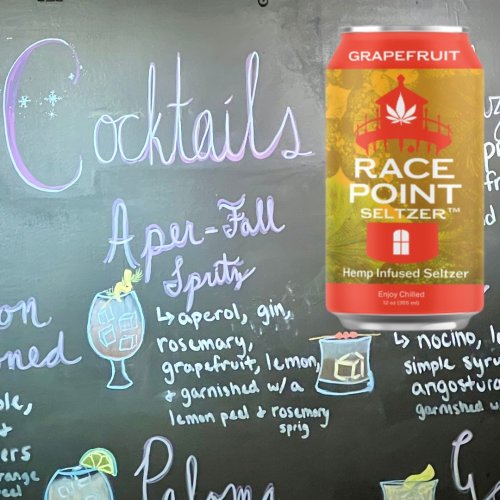 Cocktails
Aper-Fall
Spritz
↳ aperol, gin,
rosemary,
grapefruit, lemon,
& garnished w/a
lemon peel & rosemary
sprig
GRAPEFRUIT
RACE
POINT
SELTZER™
Hemp Infused Seltzer
Enjoy Chilled
12 oz (355 ml)
↳ nocino, le
simple syru
angostura
garnished w
Paloma